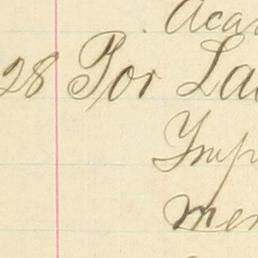 Aca
28 For La
Imp
men